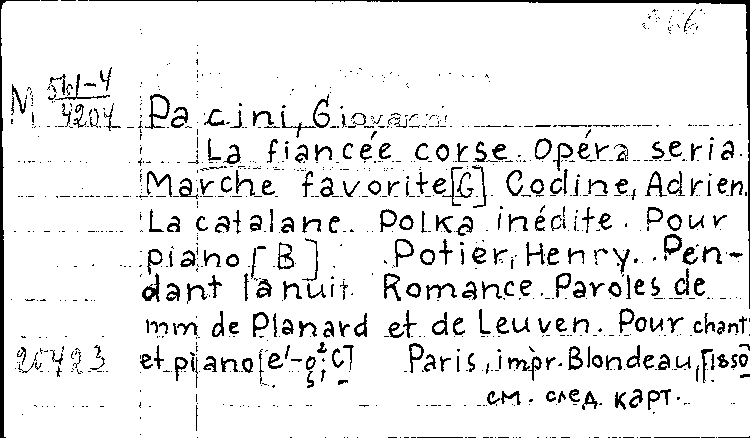 M 561-4/4204 Pacini, Giovanni
La fiancée corse. Opéra seria.
Marche favorite [G] Codine, Adrien.
La catalane. Polka inédite. Pour
piano [B] Potier, Henry. Pen-
dant la nuit. Romance. Paroles de
mm de Planard et de Leuven. Pour chant
et piano [e¹-g²; C] Paris, impr. Blondeau, [1850
см. след. карт.